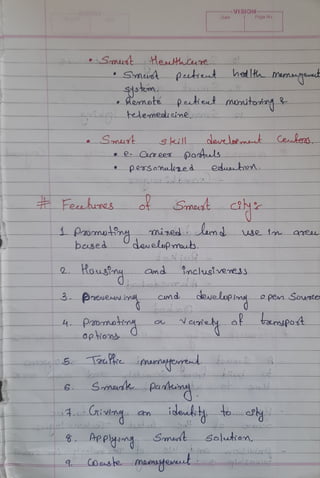 VISION
Date
Page No.
• Smart Healthcare
• Smart patient health management
system.
• Remote patient monitoring &
telemedicine.
• Smart skill development Centers.
• e-Career portals
• personalized education.
# Features of Smart city:
1. promoting mixed land use in area
based developments.
2. Housing and inclusiveness
3. Preserving and developing open Source
4. Promoting a variety of transport
options
5. Traffic management
6. Smart parking
7. Giving an identity to city
8. Applying Smart solution.
9. Waste management